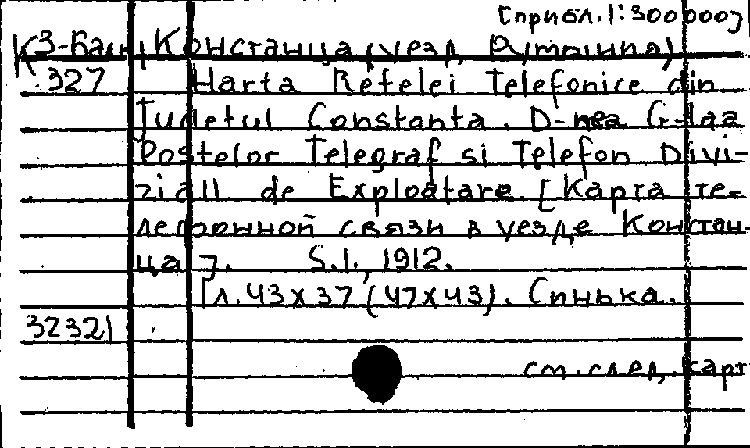 [прибл. 1:300000]
К3-Балк, Констанца (уезд, Румыния)
327 Harta Retelei Telefonice din
Judetul Constanta. D-nea G-laa
Postelor Telegraf si Telefon Divi-
ziall de Exploatare. [Карта те-
лефонной связи в уезде Констан-
ца]. S.l., 1912.
1л. 43х37 (47х43). Синька.
32321
см. след. карт